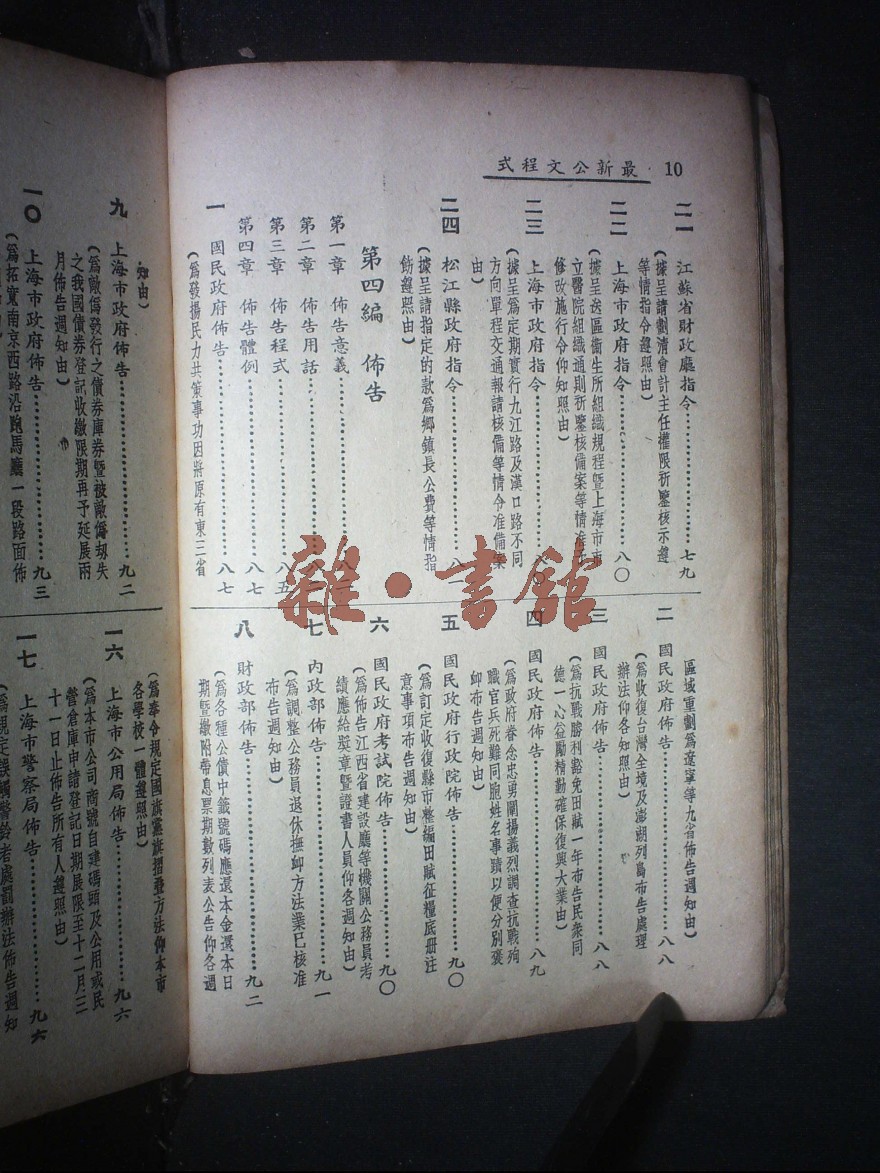 10 最新公文程式
二一 江蘇省財政廳指令……七九
(據呈請劃清會計主任權限祈鑒核示遵
等情指令遵照由)
二二 上海市政府指令……八〇
(據呈送區衞生所組織規程暨上海市市
立醫院組織通則祈鑒核備案等情准予
修改施行令仰知照由)
二三 上海市政府指令……八〇
(據呈爲定期實行九江路及漢口路不同
方向單程交通報請核備等情令准備案
由)
二四 松江縣政府指令……八
(據呈請指定的款爲鄉鎮長公費等情指
飭遵照由)
第四編 佈告
第一章 佈告意義……
第二章 佈告用話……八
第三章 佈告程式……八五
第四章 佈告體例……八七
一 國民政府佈告……八七
(爲發揚民力共策事功因將原有東三省
區域重劃爲遼寧等九省佈告週知由)
二 國民政府佈告……八八
(爲收復台灣全境及澎湖列島布告處理
辦法仰各知照由)
三 國民政府佈告……八八
(爲抗戰勝利豁免田賦一年布告民衆同
德一心益勵精勤確保復興大業由)
四 國民政府佈告……八九
(爲政府眷念忠勇闡揚義烈調查抗戰殉
職官兵死難同胞姓名事蹟以便分別褒
卹布告週知由)
五 國民政府行政院佈告……九〇
(爲訂定收復縣市整編田賦征糧底册注
意事項布告週知由)
六 國民政府考試院佈告……九〇
(爲佈告江西省建設廳等機關公務員考
績應給奬章暨證書人員仰各週知由)
七 內政部佈告……九一
(爲調整公務員退休撫卹方法業已核准
布告週知由)
八 財政部佈告……九二
(爲各種公債中籤號碼應還本金還本日
期暨繳附帶息票期數列表公告仰各週
知由)
九 上海市政府佈告……九二
(爲敵僞發行之債券庫券暨被敵僞刼失
之我國債券登記收繳限期再予延展兩
月佈告週知由)
一〇 上海市政府佈告……九三
(爲拓寬南京西路沿跑馬廳一段路面佈
(爲奉令規定國旗黨旗摺疊方法仰本市
各學校一體遵照由)
一六 上海市公用局佈告……九六
(爲本市公司商號自建碼頭及公用或民
營倉庫申請登記日期展限至十二月三
十一日止佈告所有人遵照由)
一七 上海市警察局佈告……九六
(爲規定誤觸警鈴者處罰辦法佈告週知
雜·書館